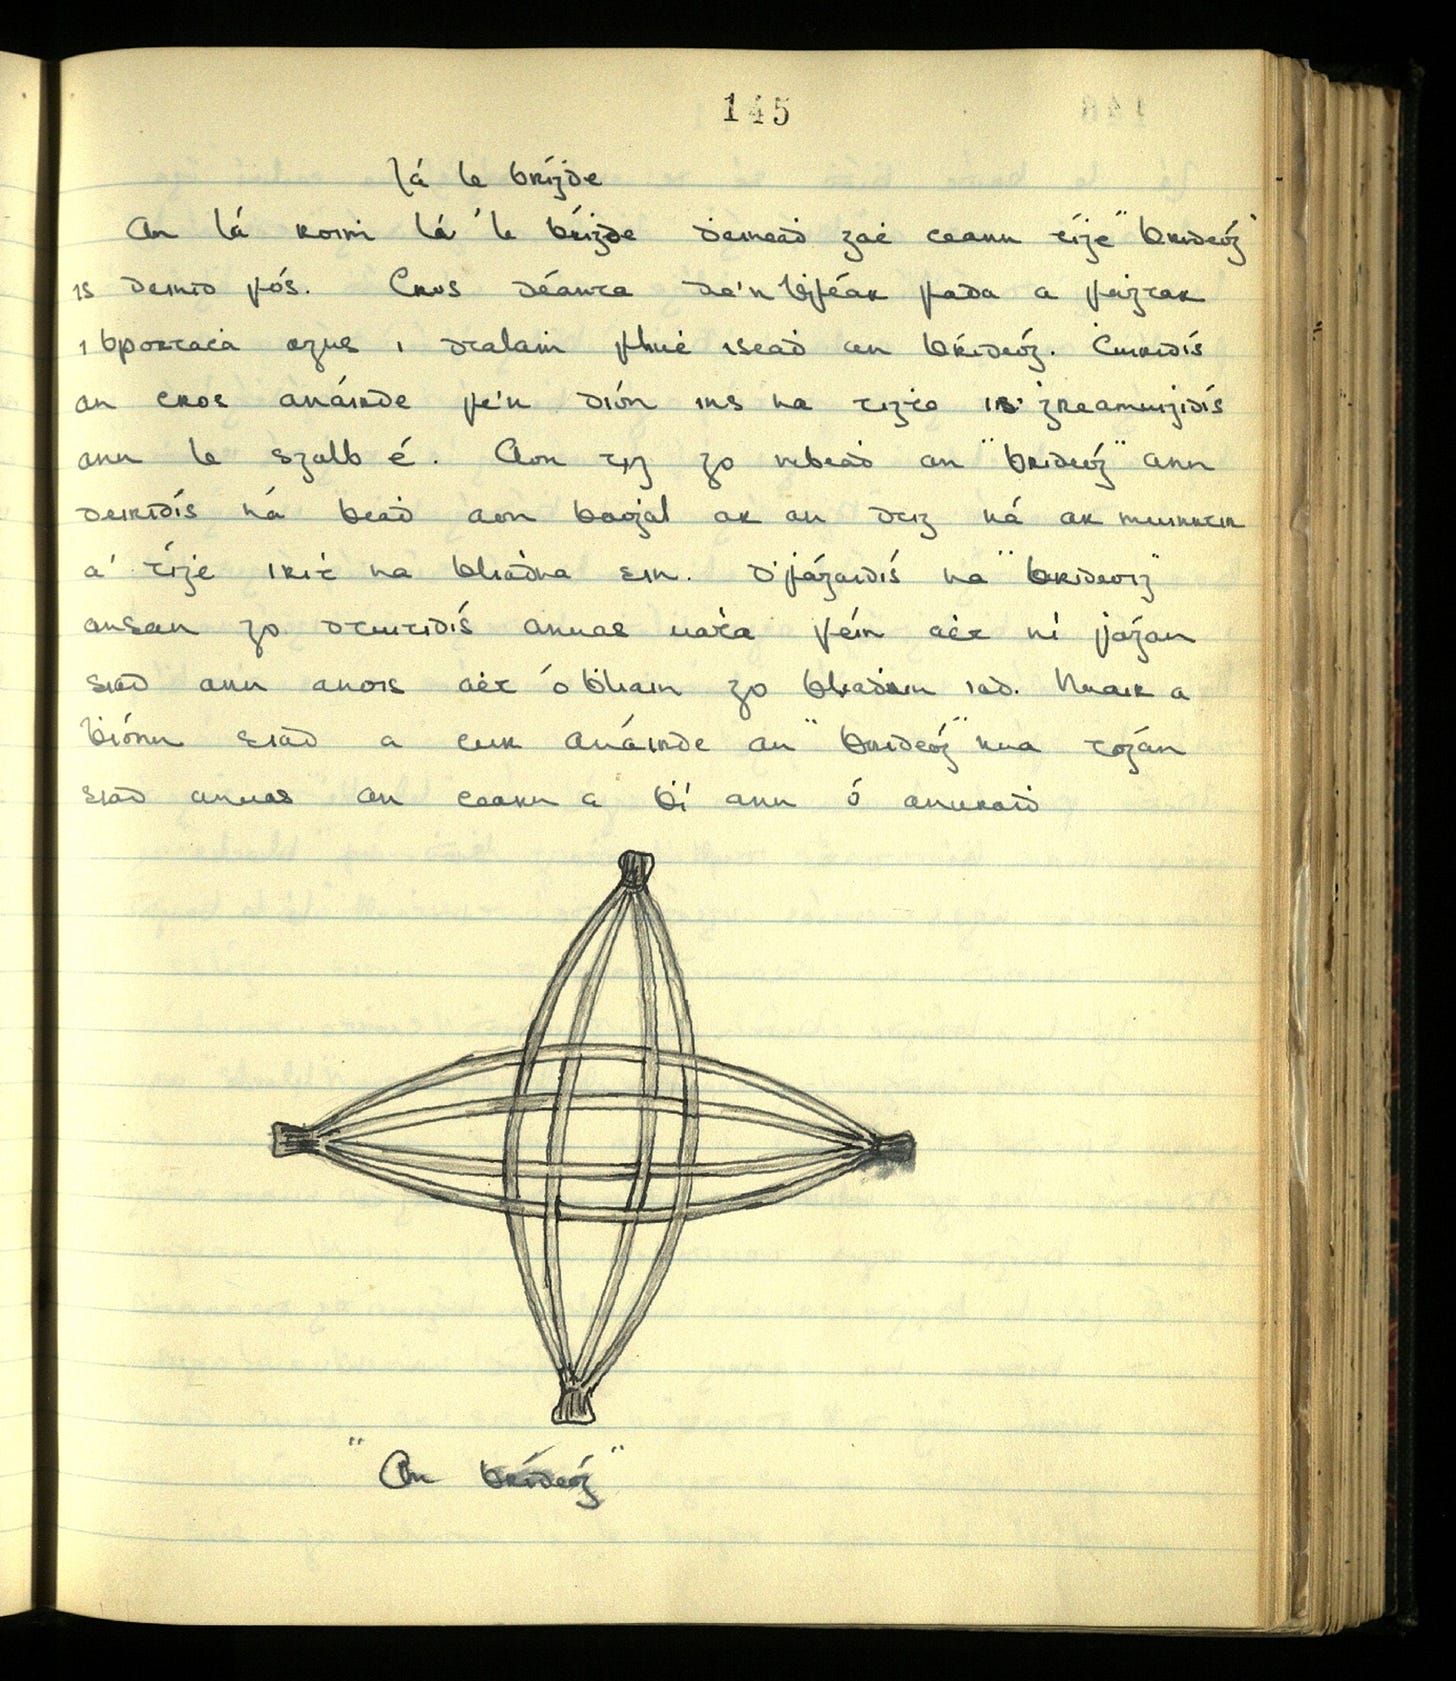 145
Lá le Bríġde
An lá roiṁ lá 'le Bríġde ḋeineaḋ gaċ ceann tíġe "brideóg"
is deinid fós. Cros déanta de'n ḃféar fada a fáigtar
i bportaċa agus i dtalaṁ fliuċ iseaḋ an brídeóg. Ċuiridís
an cros anáirde fé'n díon ins na tigṫe is ġreamuiġidís
ann le sgolb é. Aon tig go mbeaḋ an "brideóg" ann
deiridís ná beaḋ aon baoġal ar an dtig ná ar muinntir
a' tíġe iriṫ na bliaḋna sin. D'fágaidís na "brideoig"
ansan go dtuitidís anuas uaṫa féin aċt ní fágan
siad ann anois aċt ó ḃliain go bliaḋain iad. Nuair a
ḃíonn siad a cur anáirde an "brideóg" nua tógan
siad anuas an ceann a ḃí ann ó anuraiḋ
"An brídeóg"